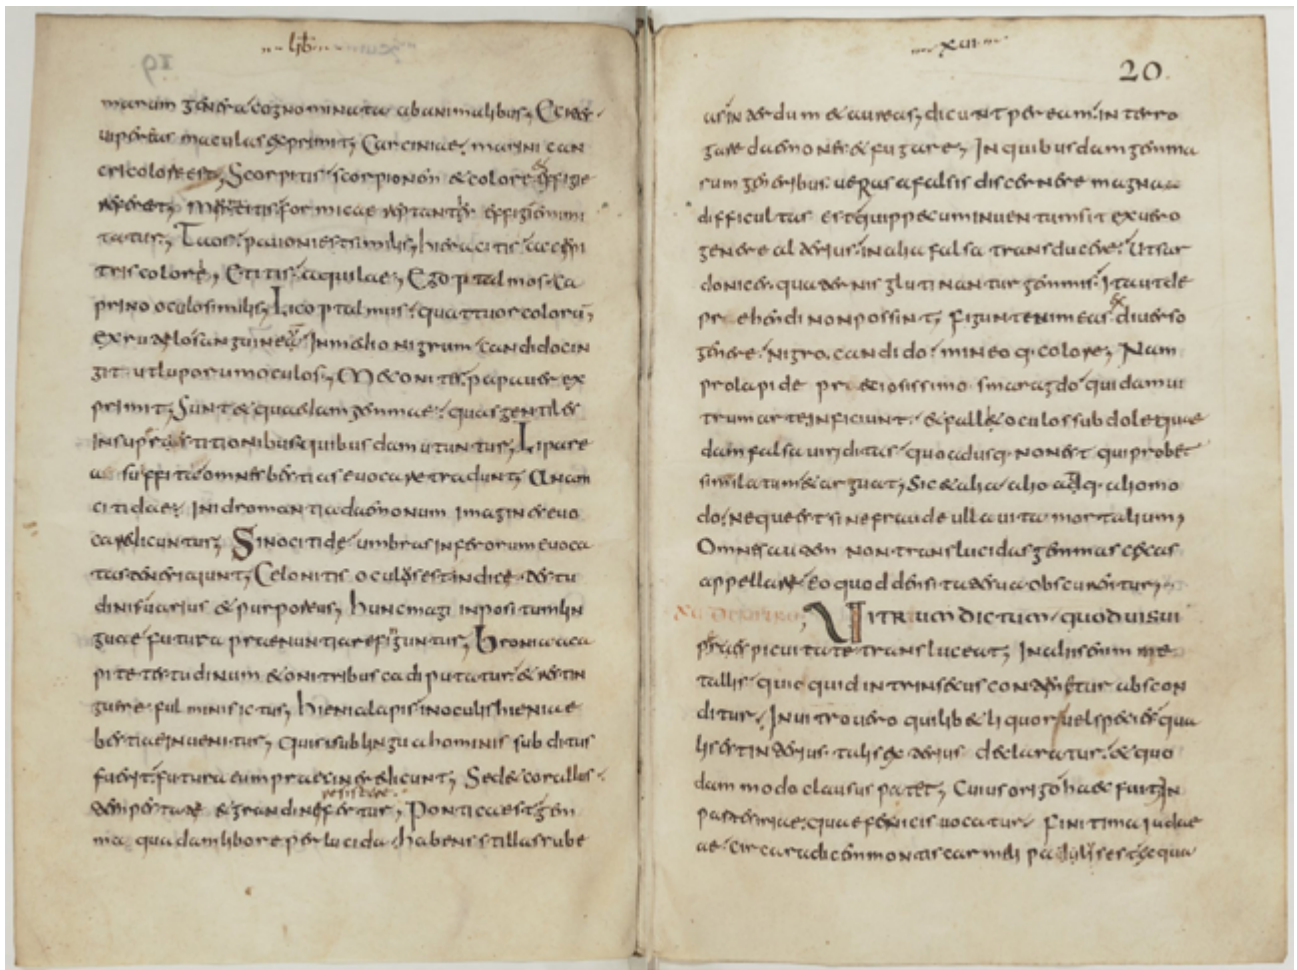 lib
marum genera cognominata ab animalibus; Echi
viperas maculas exprimit; Carciniae marini can
cri colore est; Scorpitis scorpionem & colore effigie
Mirmecitis formicae reptantis effigiem imi
tatur; Taos pavoni est similis; hieracitis accipi
tris colore; Etitis aquilae; Egoptalmos ca
prino oculo similis; Licoptalmus quattuor colorū;
ex rutilo sanguinea In medio nigrum candido cin
git ut luporum oculos; Meconites papaver ex
primit; Sunt & quaedam gemmae quas gentiles
in superstitionibus quibusdam utuntur; Lipare
a suffita omnes bestias evocare tradunt; Anan
citidae In idromantia daemonum imagines evo
cari dicuntur; Sinocitide umbras inferorum evoca
tas teneri aiunt; Celonitis oculus est indice testu
dinis varius & purporeus; hunc magi inpositum lin
guae futura praenuntiare figuntur; bronia a ca
pite testudinum & onitribus cadi putatur & restin
guere fulminis ictus; hienia lapis in oculis hieniae
bestiae invenitur; qui si sub lingua hominis subditus
fuerit futura eum praecinere dicunt; Sed & corallos
resistere
tempestate & grandines fertur; Pontica est gem
ma quadam libore perlucida habens stillas rube
xvi
20
as Interdum & aureas; dicunt per eam interro
gare daemones & fugare; In quibusdam gemma
rum generibus veras a falsis discernere magna
difficultas est quippe cum inventum sit ex vero
genere alterius in alia falsa transducere Ut sar
donices quae ternis glutinantur gemmis Ita ut de
prehendi non possint; figunt enim eas ex diverso
genere nigro candido mineoq. colore; Nam
pro lapide preciosissimo smaragdo quidam vi
trum arte inficiunt & fallet oculos subdole quae
dam falsa viriditas quoadusq. non est qui probet
simulatum & arguat; Sic & alia alio adq. alio mo
do Neque est sine fraude ulla vita mortalium;
Omnes autem non translucidas gemmas cęcas
appellare eo quod densitate sua obscurentur;
Vitrum dictum quod visui
perspicuitate transluceat; In aliis enim me
tallis quicquid intrinsecus continetur abscon
ditur In vitro vero quilib& liquor vel species qua
lis est interius talis exterius declaratur & quo
dam modo clausus patet; Cuius origo haec fuit In
parte siriae quae fenicis vocatur finitima iudae
ae circa radicem montis carmeli palus est ex qua